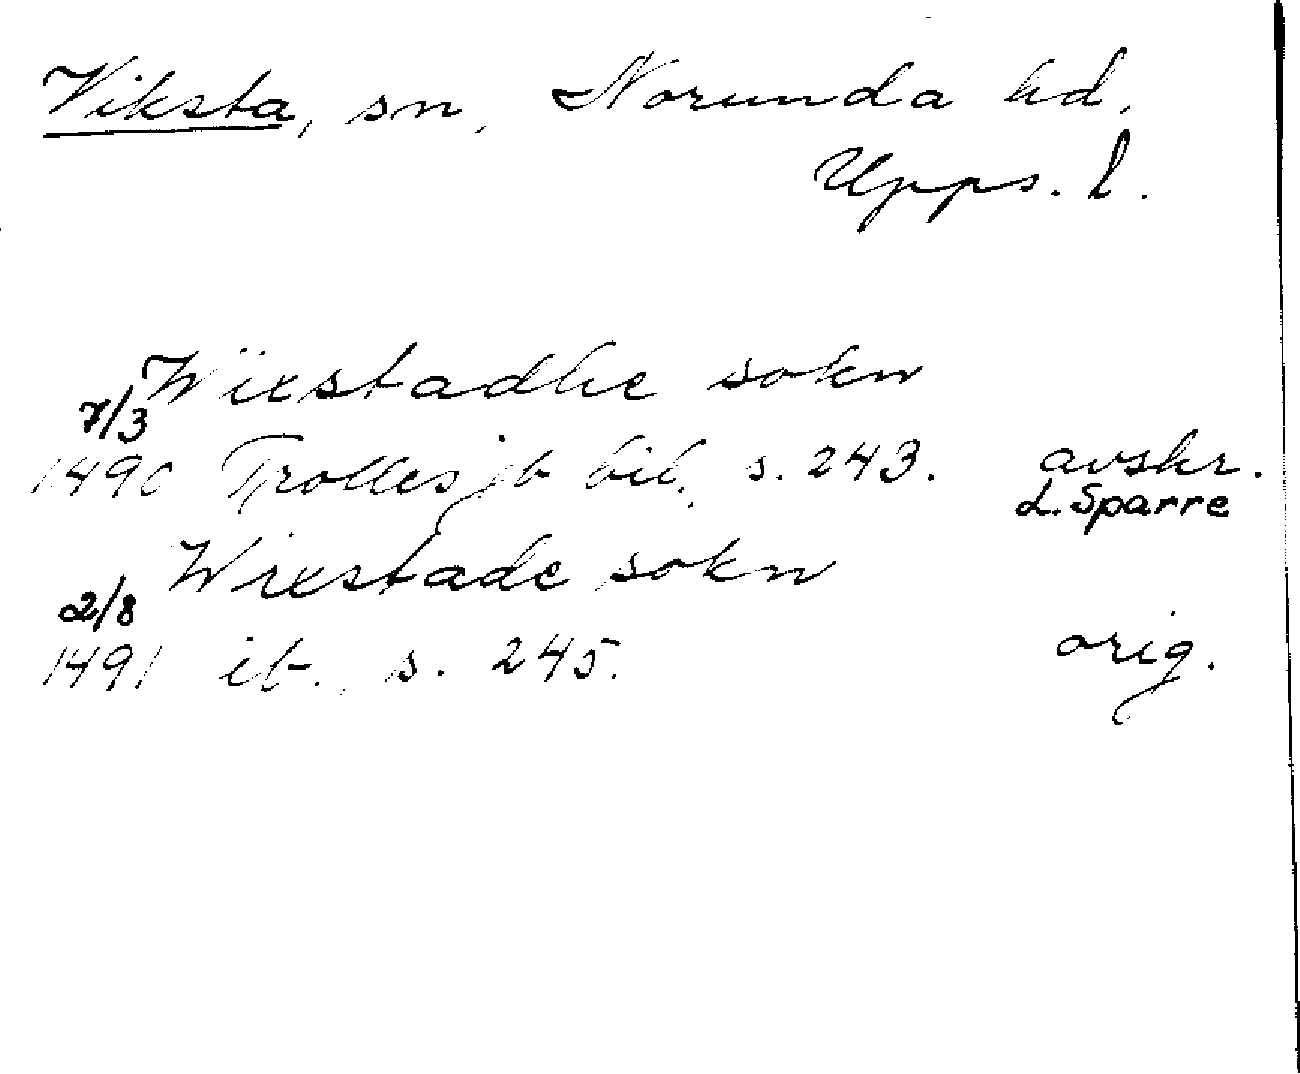 Viksta, sn, Norunda hd,
Upps. l.
Wixstadhe sokn
7/3
1490 Trolles jb bil. s. 243. avskr.
L. Sparre
Wixstade sokn
2/8
1491 ib., s. 245. orig.